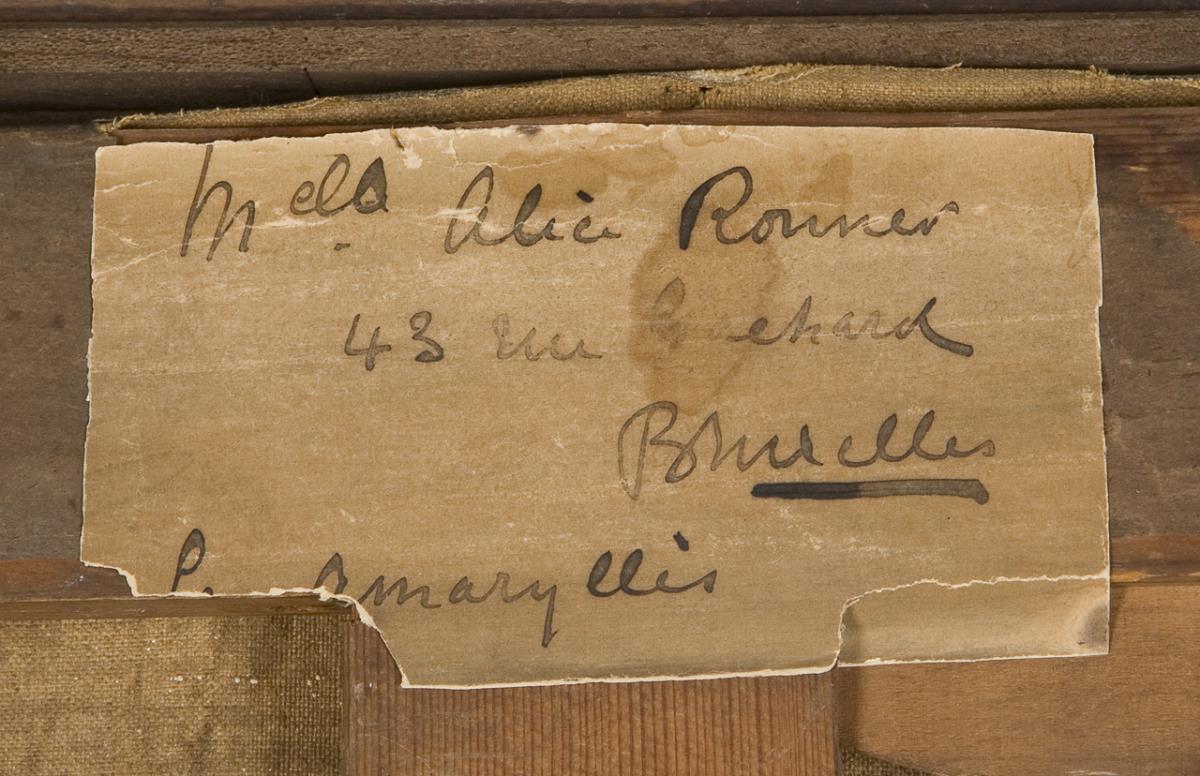 Melle. Alice Ronner
43 rue Gachard
Bruxelles
Amaryllis